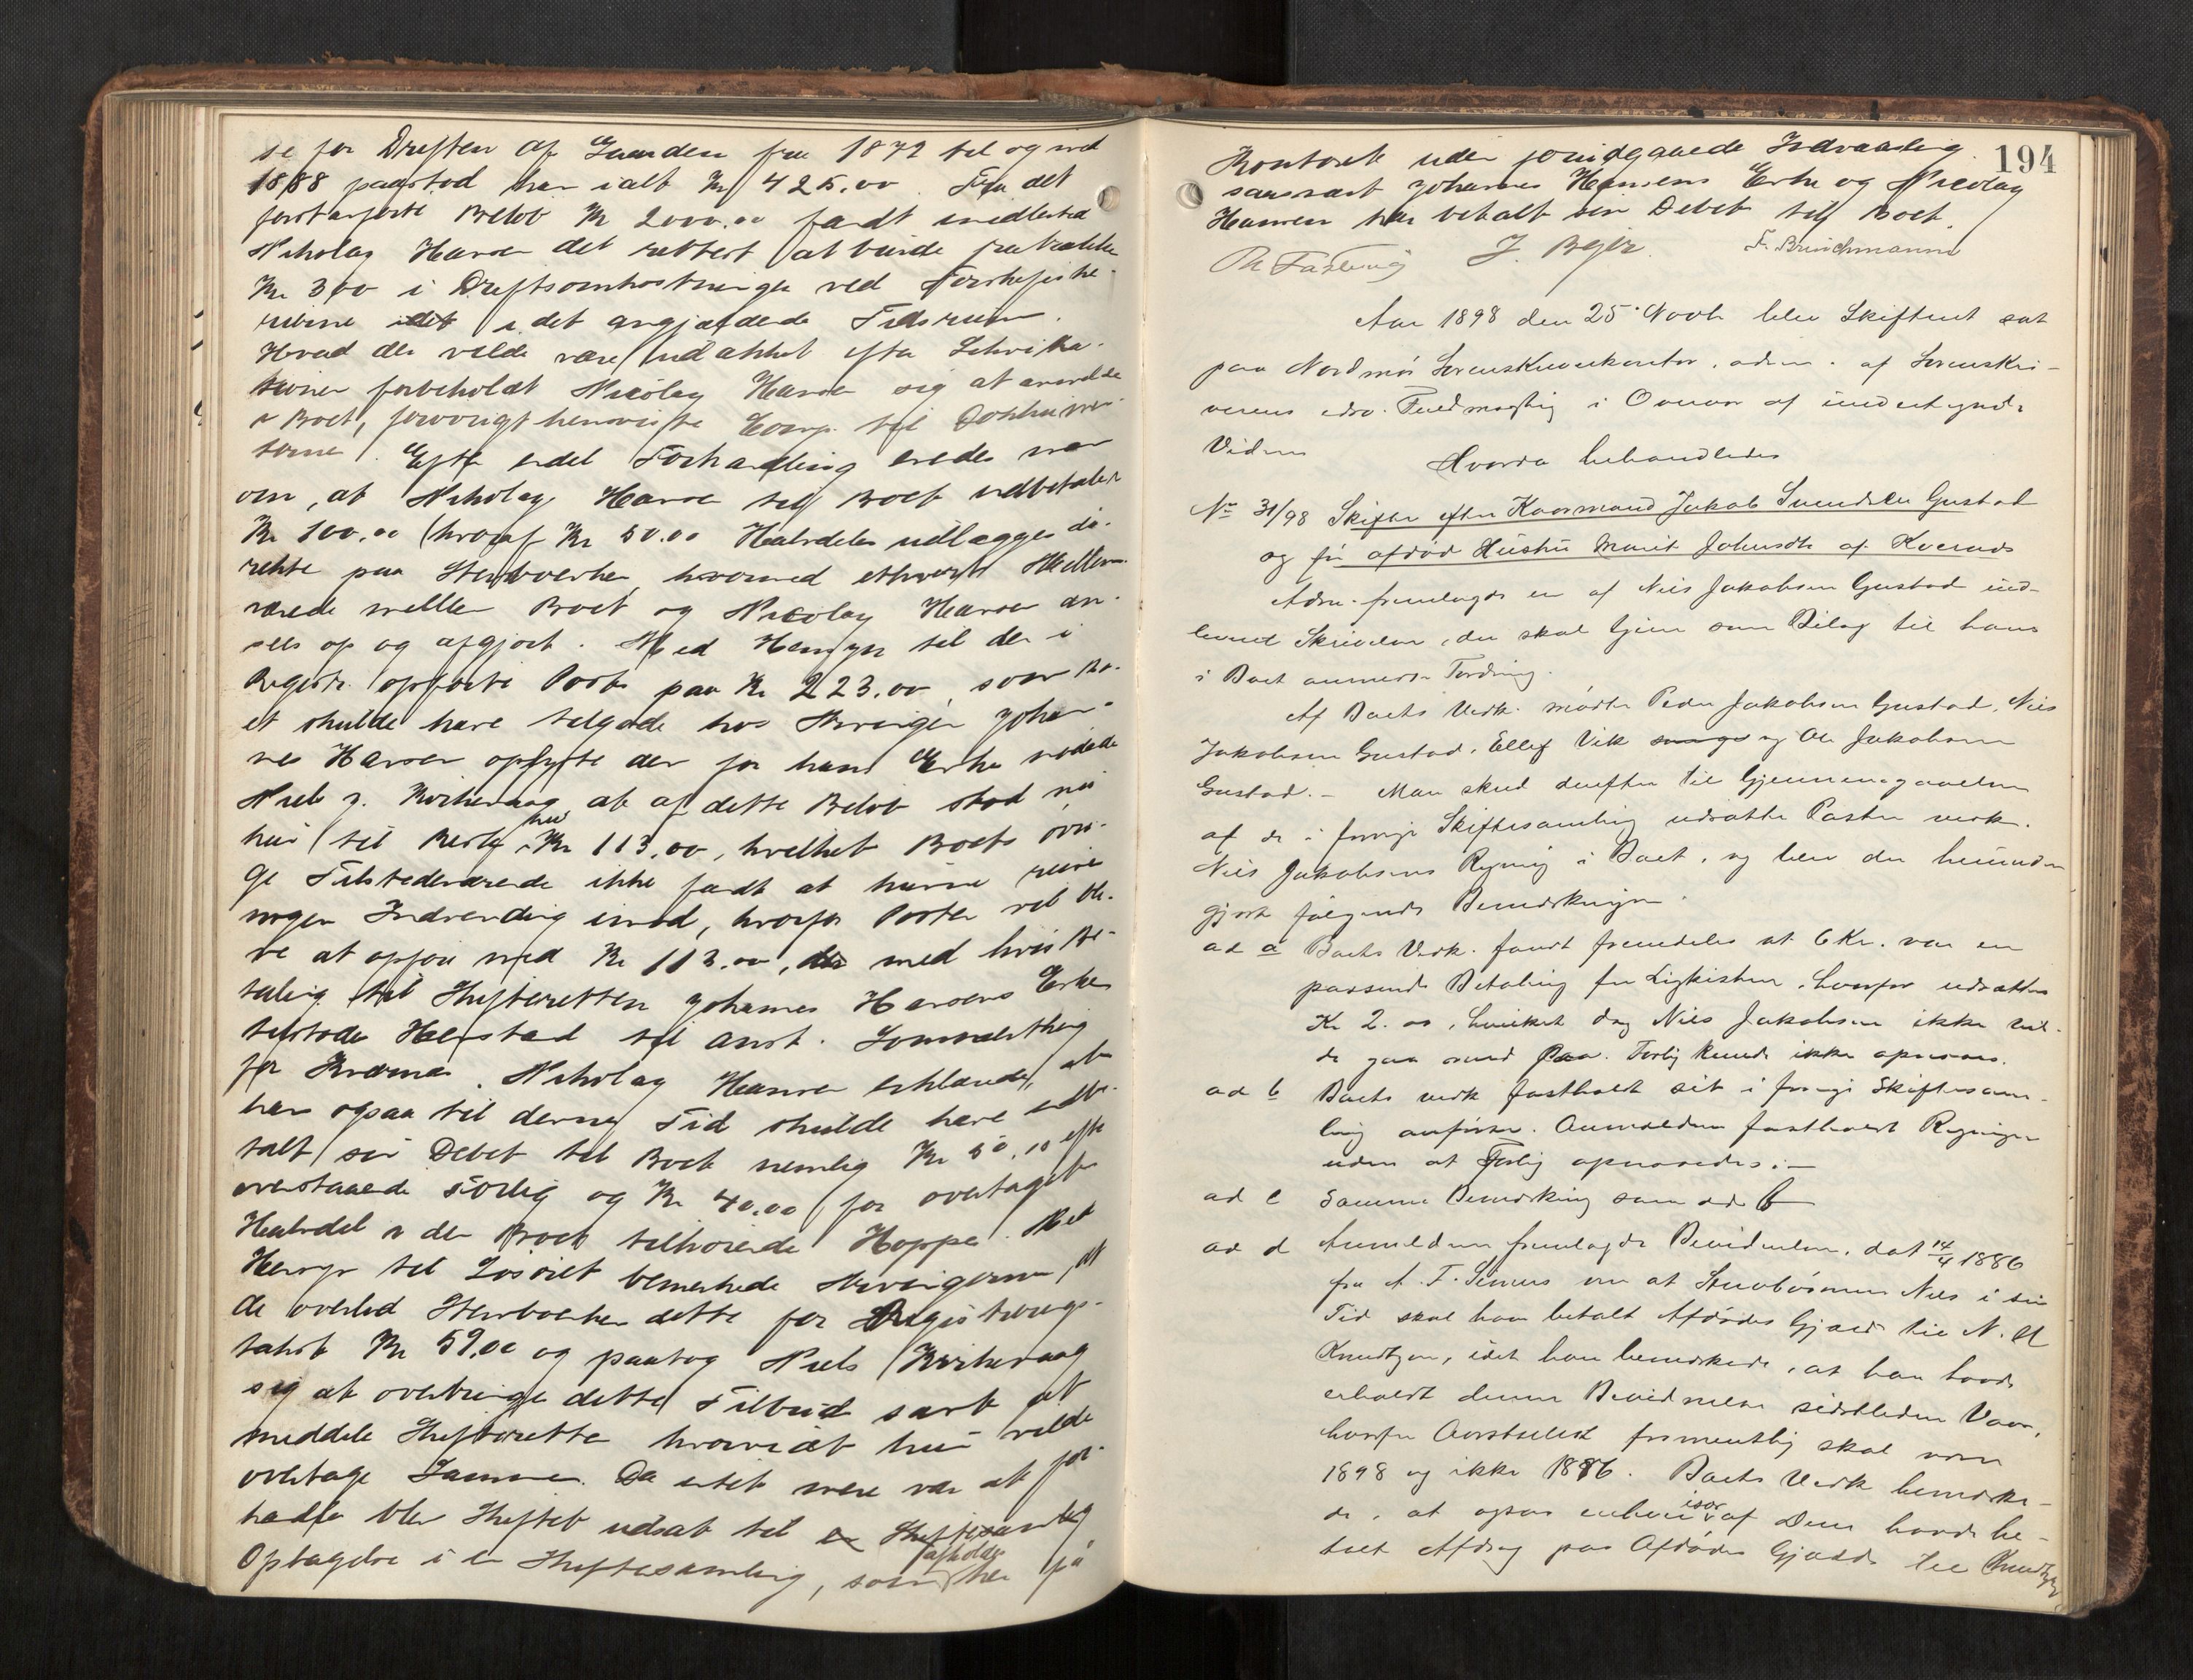 se for Driften af Gaarden fra 1872 til og med
1888 paastod han ialt Kr 425.00. Fra det
først anførte Beløb Kr 2000.00 fandt imidlertid
Nikolay Hansen det rettest at burde fratrække
Kr 300 i Driftsomkostninger ved Torskefiske-
rierne idet i det angjældende Tidsrum.
Hvad der vilde være udtakket efter
forbeholdt Nicolay Hansen sig at anmelde
i Boet, forøvrigt henviste Comp. til
terne. Efter endel Forhandling enedes man
om, at Nikolay Hansen til Boet udbetaler
Kr 100.00 (hvoraf Kr 50.00 Halvdelen udlægges di-
rekte paa Stervboenken, hvormed ethvert Mellem-
værende mellem Boet og Nicolay Hansen an-
sees op og afgjort. Med Hensyn til den i
Registr. opførte Post paa Kr 223.00, som Bo-
et skulde have tilgode hos Arvingen Johan-
nes Hansen oplyste den for hans Enke mødende
Niels J. Kirkevaag at af dette Beløb stod nu
kun til Rest Kr 113.00, hvilket Boets øvri-
ge Tilstedeværende ikke fandt at kunne reise
nogen Indvending imod, hvorfor Posten vil bli-
ve at opføre med Kr 113.00, med hvis Be-
taling til Skifteretten Johannes Hansens Enke
tilstodes Henstand til anst. Sommerthing
for Kvernes. Nikolay Hansen erklærede, at
han ogsaa til denne Tid skulde have indbe-
talt sin Debet til Boet nemlig Kr 50.00 efter
ovenstaaende Forlig og Kr 40.00 for overtaget
Halvdel i den Boet tilhørende Hoppe. Med
Hensyn til Løsøret bemerkede Arvingerne, at
de overlod Stervboenken dette for Registrerings-
takst Kr 59.00 og paatog Niels Kirkevaag
sig at overbringe dette Tilbud samt at
meddele Skifteretten hvorvidt hun vilde
overtage Samme. Da intet mere var at for-
handle blev Skiftet udsat til Skiftesamling
Optagelse i en Skiftesamling, som afholdes her på
194
Kontoret uden foregaaende Indvarsling
saasnart Johannes Hansens Enke og Nicolay
Hansen har betalt sin Debet til Boet.
J. Bejer. F. Brinchmann
Aar 1898 den 25 Novbr blev Skifteret sat
paa Nordmør Sorenskriverkontor, adm. af Sorenskri-
verens edsv. Fuldmægtig i Overvær af undertegnede
Vidner
Hvorda behandledes
No 31/98 Skifte efter Kaarmand Jakob Svendsen Gustad
og før afdød Hustru Marit Johnsdtr af Kvernes
Adm. fremlagde en af Niels Jakobsen Gustad ind-
levered Skrivelse, der skal tjene som Bilag til hans
i Boet anmeldte Fordring.
Af Boets Vedk. mødte Peder Jakobsen Gustad, Niels
Jakobsen Gustad, Ellef Vik og Ole Jakobsen
Gustad. – Man skred derefter til Gjennemgaaelse
af de i forrige Skiftesamling udsatte Poster vedk.
Niels Jakobsens Regning i Boet, og blev der herunder
gjort følgende Bemærkninger.
ad a Boets Vedk. fandt fremdeles at 6 Kr. var en
passende Betaling for Ligkisten, hvorfor udsattes
Kr 2.00, hvilket dog Niels Jakobsen ikke vil-
de gaa med paa. Forlig kunde ikke opnaaes.
ad b Boets vedk fastholdt sit i forrige Skiftesam-
ling anførte. Anmelderen fastholdt Regningen
uden at Forlig opnaaedes. –
ad c Samme Bemærkning som ad b
ad d Anmelderen fremlagde Bevidnelse, dat 14/4 1886
fra A. F. om at Stervbosønnen Niels i sin
Tid skal have betalt Afdødes Gjæld til N. H
Knudtzon, idet han bemærkede, at han havde
erholdt denne Bevidnelse sidstleden Vaar,
hvorfor Aarstallet formentlig skal være
1898 og ikke 1886. Boets Vedk bemærke-
de, at ogsaa enhver især af Dem havde be-
talt Afdrag paa Afdødes Gjæld til Knudtzon